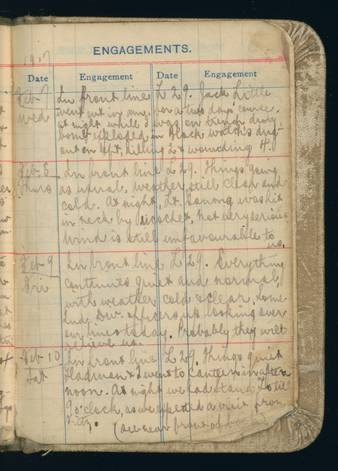 1917
ENGAGEMENTS.
Date Engagement Date Engagement
Feb 7 In front line L 29. Jack Little
Wed went out in for a two days' course.
at night while I was on trench duty
bomb exploded in Black Watch's dug-
out on left, killing 2 & wounding 4.
Feb. 8 In front line L 29. Things going
Thurs as usual, weather still clear and
cold. At night, Lt. was hit
in neck by ricochet, not very serious
Wind is still unfavourable to
us.
Feb. 9 In front line L 29. Everything
Fri continues quiet and normal,
with weather cold & clear, some
Div. officers looking over
our lines today. Probably they will
relieve us.
Feb 10 In front line L 29. Things quiet
Sat & I went to canteen in after
noon. At night we had stand to till
9 o'clock, as we expected a visit from
Fritz.
(See rear